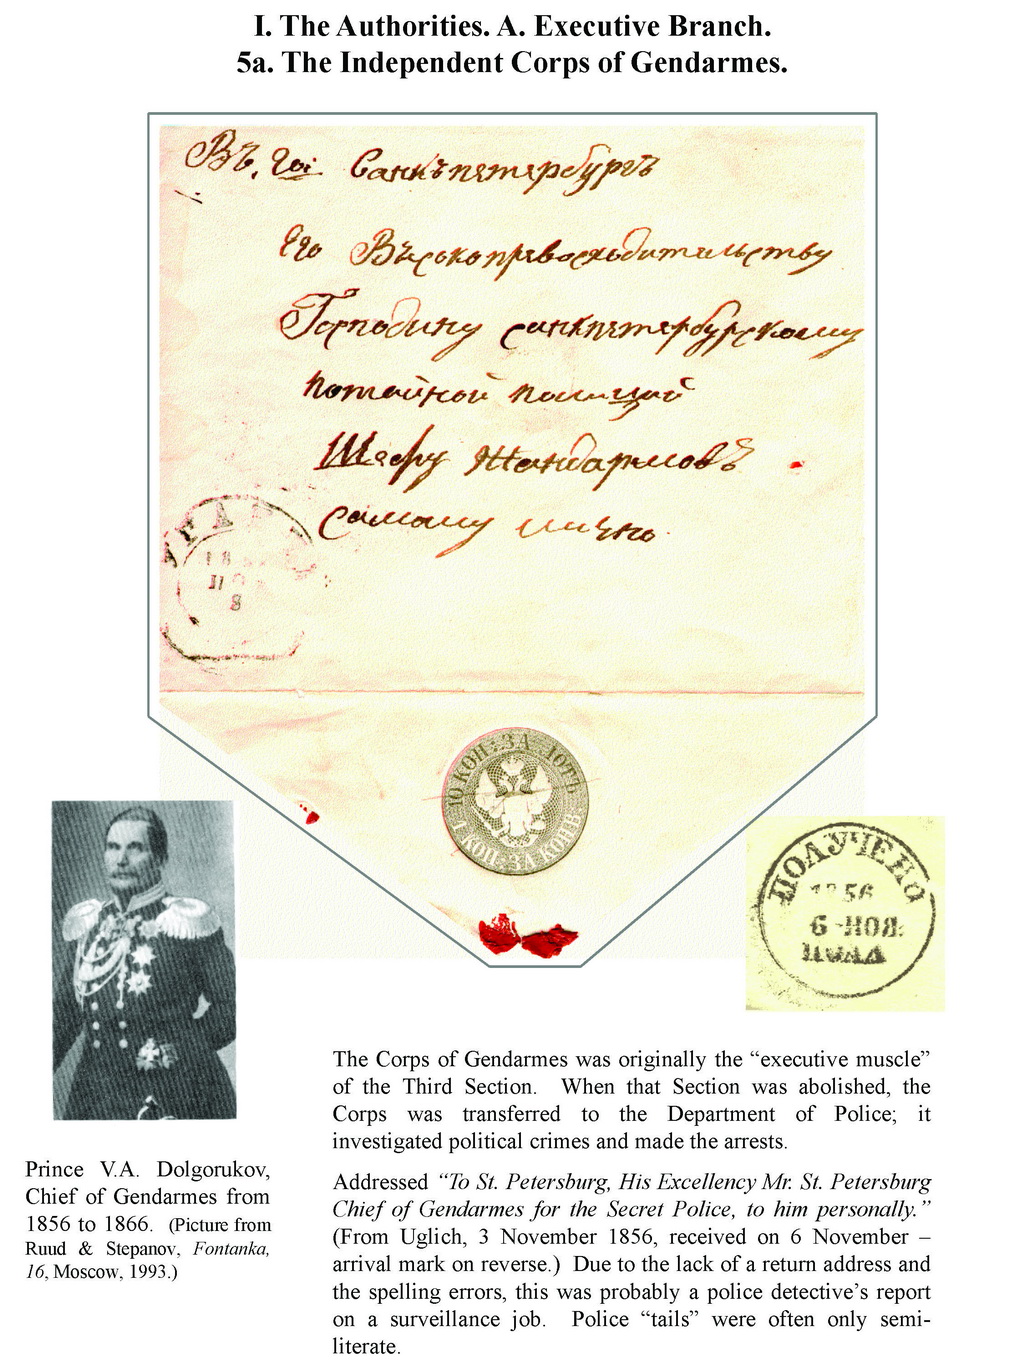 I. The Authorities. A. Executive Branch.
5a. The Independent Corps of Gendarmes.
Въ, гoi Санкъпетербургъ
Его Въсокопревосходительству
Господину санкпетербурскому
потайной полицой
Шефу Жандармовъ
самому лично.
УГЛ
18
НО
8
10 КОП: ЗА ЛОТЪ
1 КОП: ЗА КОНВ:
ПОЛУЧЕНО
1856
6 НОЯ:
ПОЛД
The Corps of Gendarmes was originally the “executive muscle”
of the Third Section. When that Section was abolished, the
Corps was transferred to the Department of Police; it
investigated political crimes and made the arrests.
Prince V.A. Dolgorukov,
Chief of Gendarmes from
1856 to 1866. (Picture from
Ruud & Stepanov, Fontanka,
16, Moscow, 1993.)
Addressed “To St. Petersburg, His Excellency Mr. St. Petersburg
Chief of Gendarmes for the Secret Police, to him personally.”
(From Uglich, 3 November 1856, received on 6 November –
arrival mark on reverse.) Due to the lack of a return address and
the spelling errors, this was probably a police detective’s report
on a surveillance job. Police “tails” were often only semi-
literate.